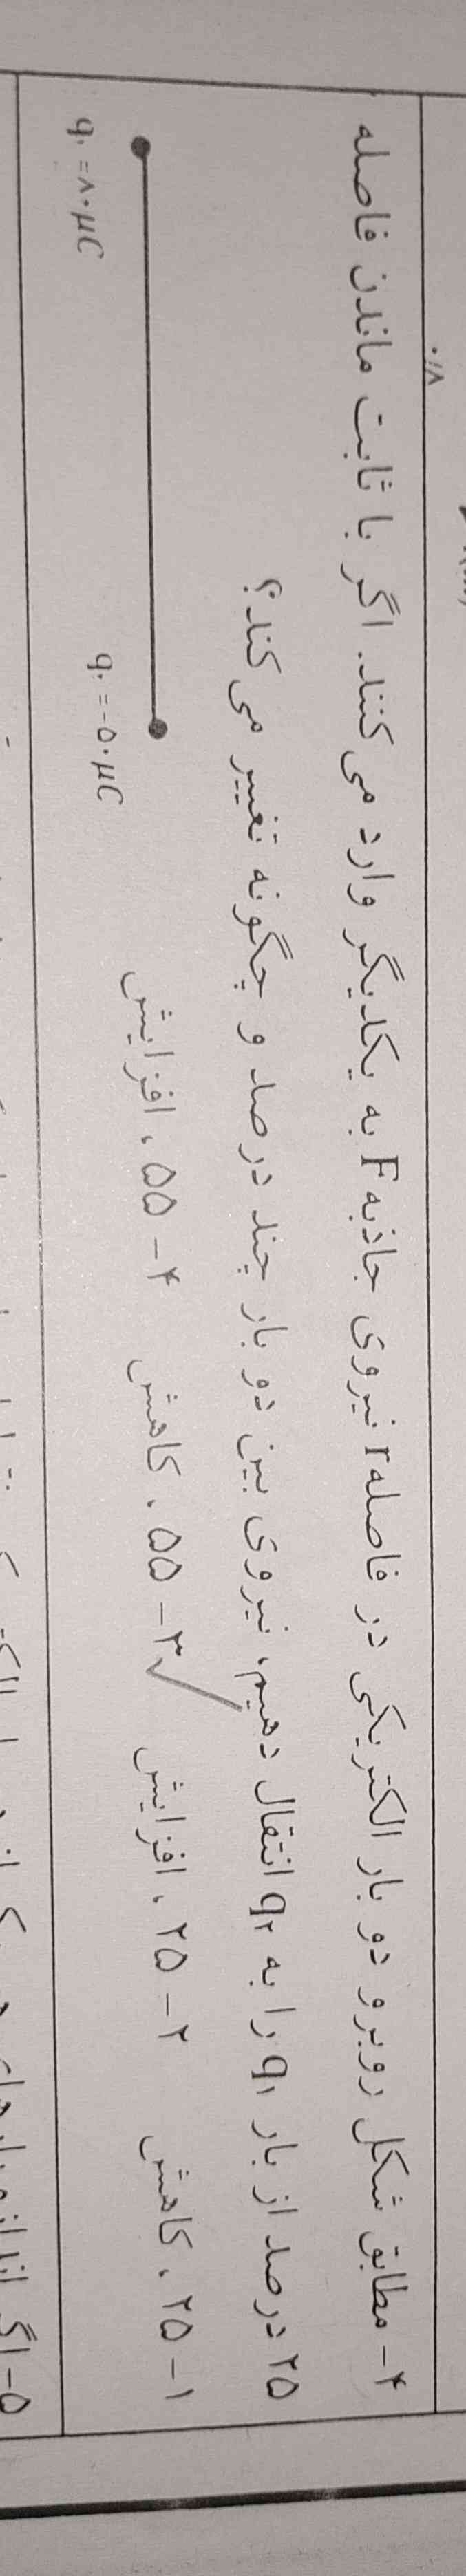 ۰/۸
۴- مطابق شکل روبرو دو بار الکتریکی در فاصله r نیروی جاذبه F به یکدیگر وارد می کنند. اگر با ثابت ماندن فاصله
۲۵ درصد از بار q₁ را به q₂ انتقال دهیم، نیروی بین دو بار چند درصد و چگونه تغییر می کند؟
۱- ۲۵ ، کاهش ۲- ۲۵ ، افزایش ۳- ۵۵ ، کاهش ۴- ۵۵ ، افزایش
q. =-۵۰ µC q. =۸۰ µC